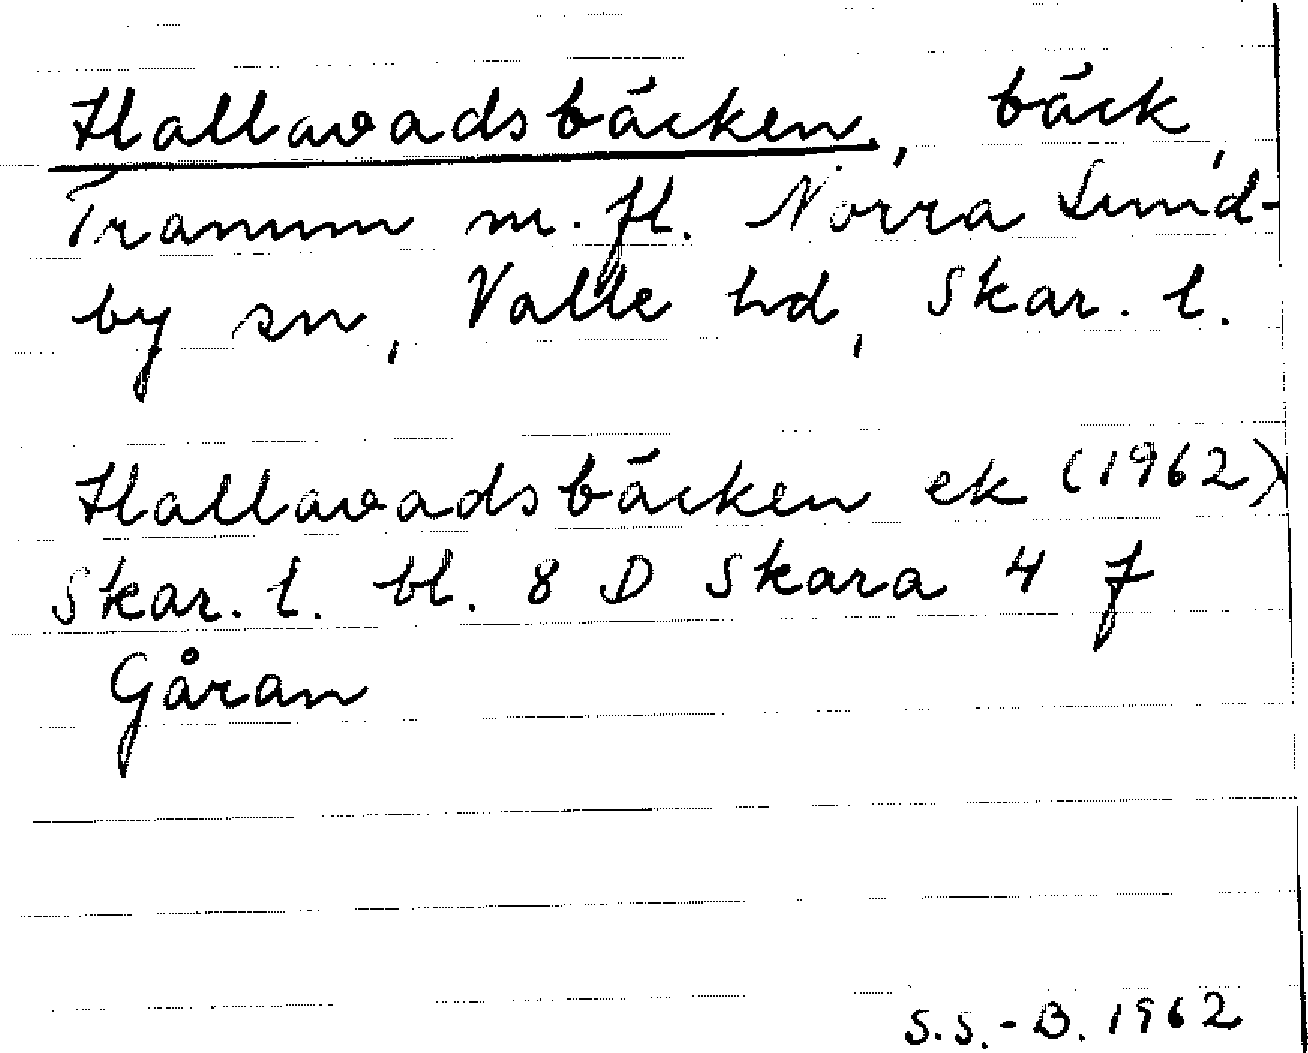 Hallavadsbäcken, bäck,
Tranum m. fl. Norra Lund-
by sn, Valle hd, Skar. l.
Hallavadsbäcken ek (1962)
Skar. l. bl. 8 D Skara 4 f
Gåran
S.S.-B. 1962